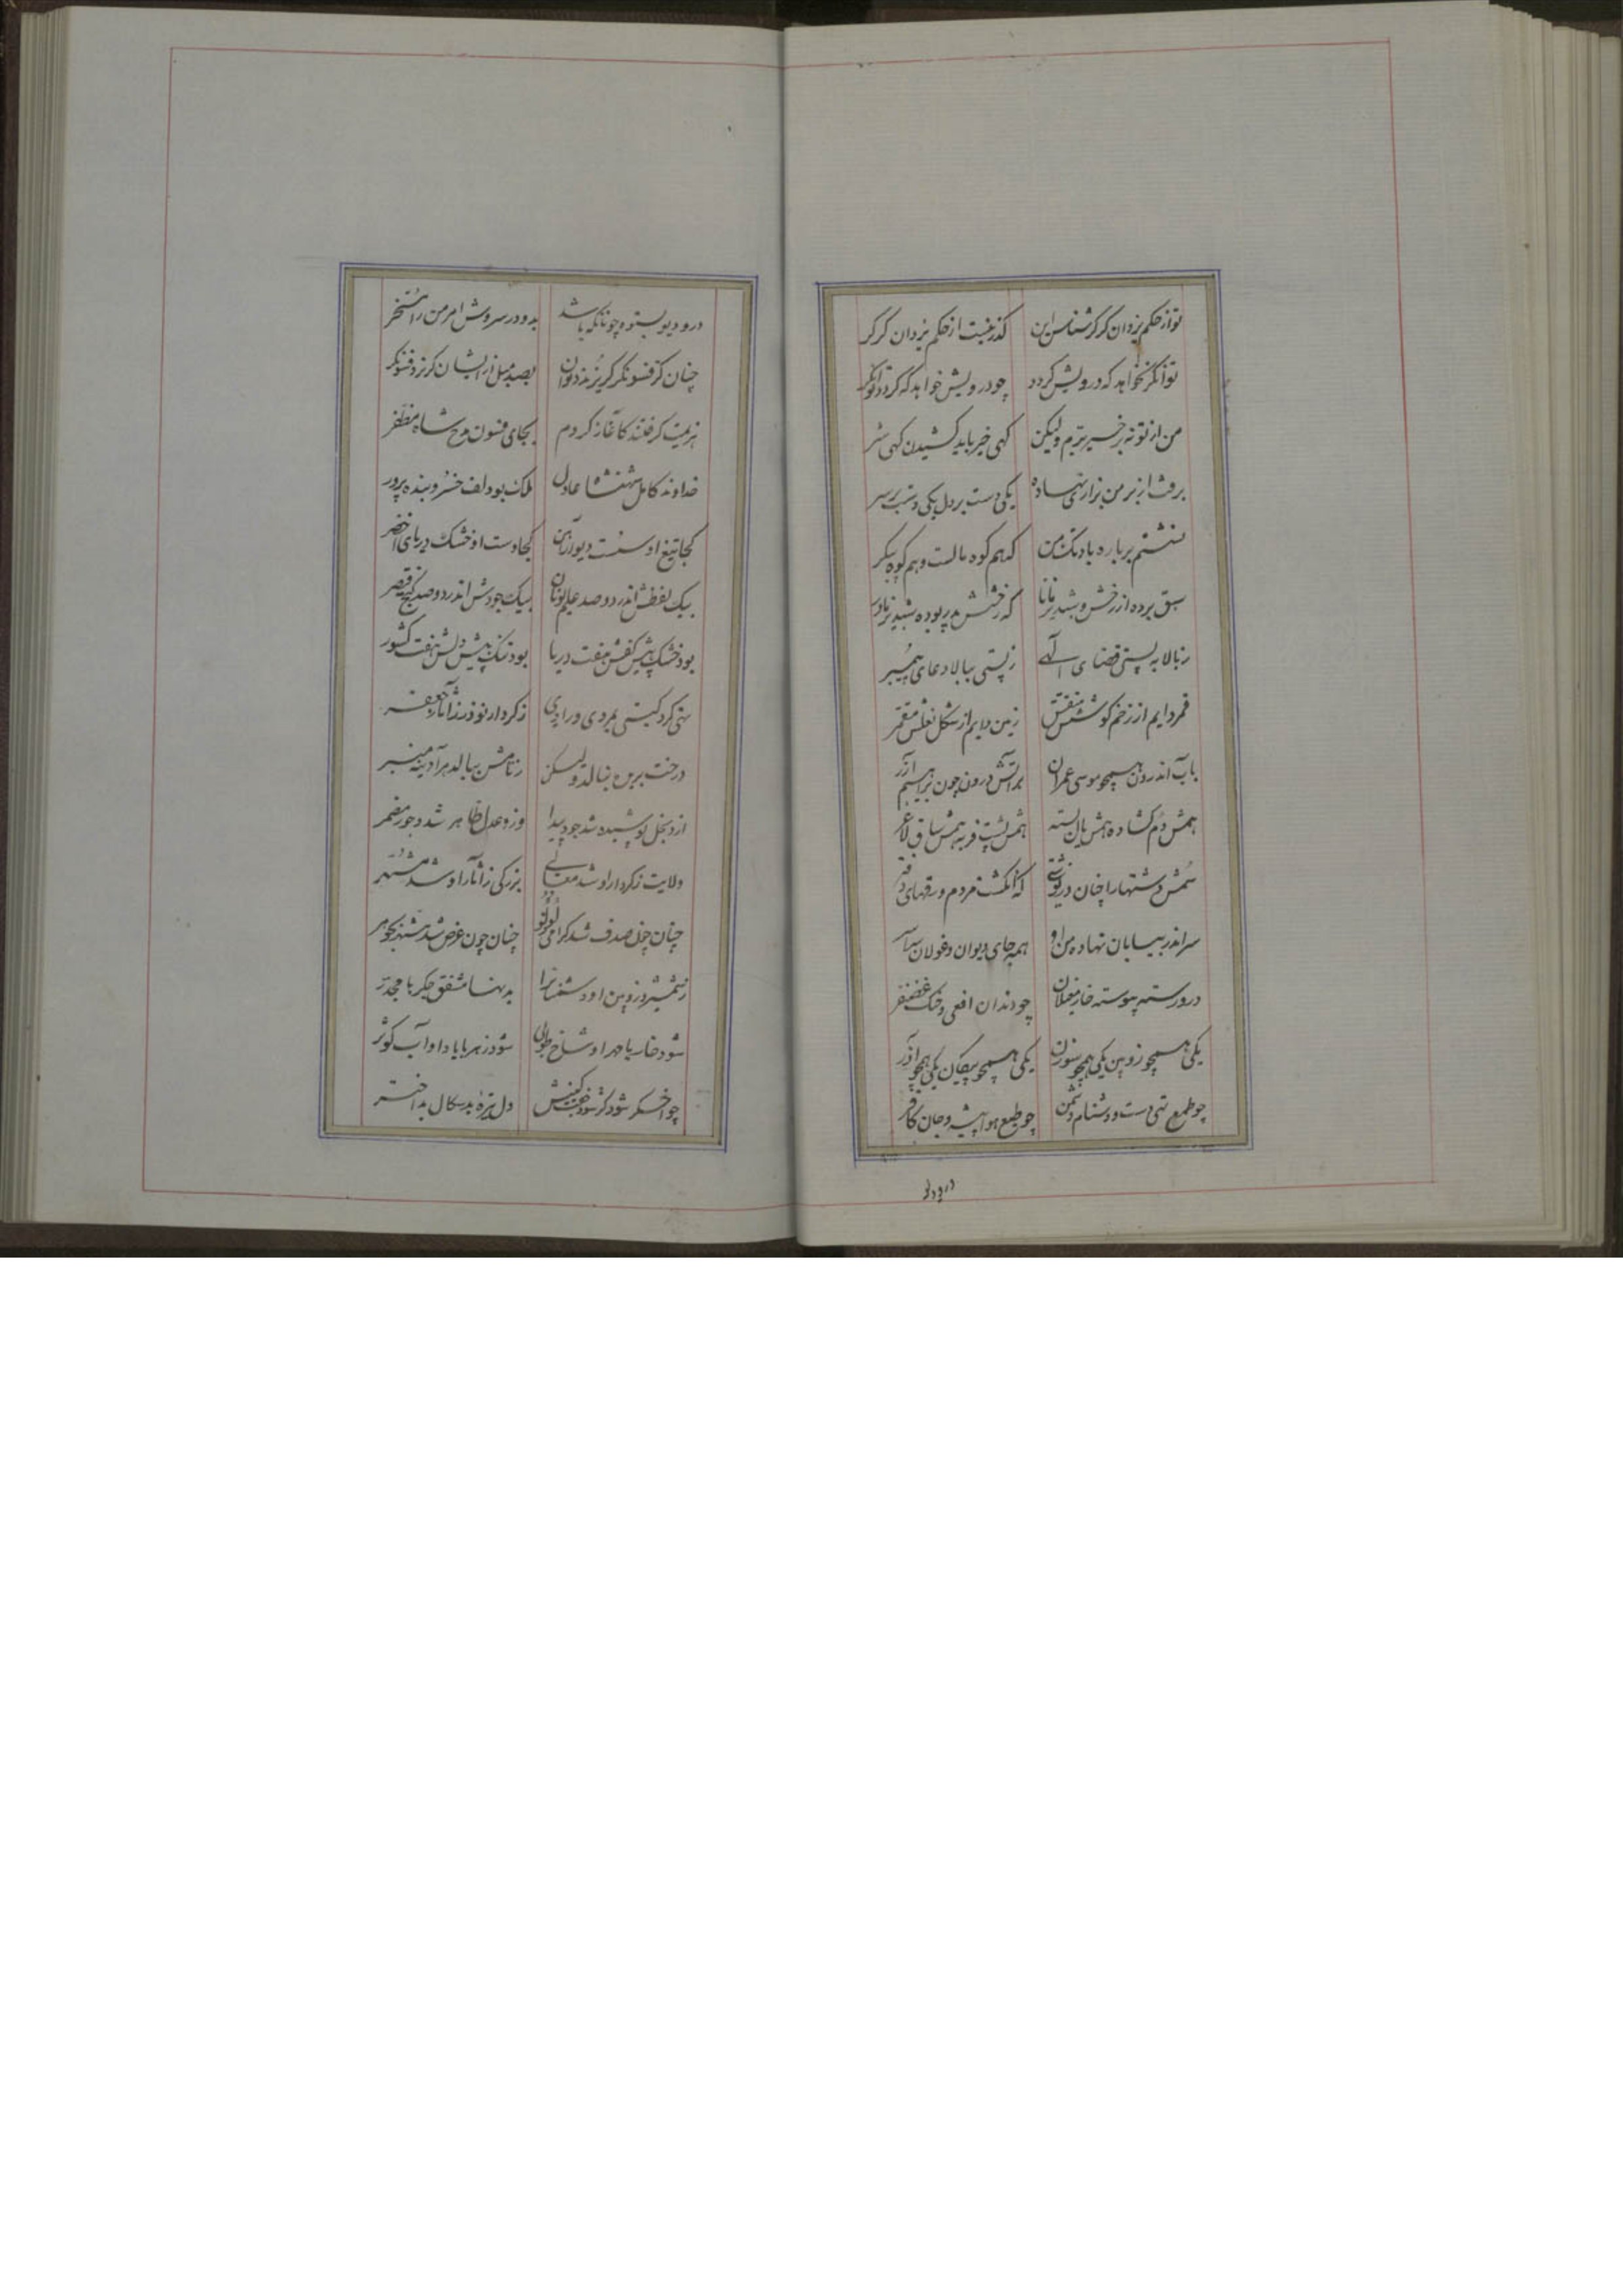 تو از حکم یزدان کرکر شناس این کذر نیست از حکم یزدان کرکر
توانکر نخواهد که درویش کردد چو درویش خواهد که کردد توانکر
من از تو نه بر خیر برم ولیکن کهی خیر باید کشیدن کهی شر
برفت از بر من بزاری نهاده یکی دست بر دل یکی دست بر سر
نشستم بر باره بادتک من که هم کوه مالست و هم کوه پیکر
سبق برده از رخش و شبدیز مانا که رخشش پدر بوده شبدیز مادر
ز بالا به پستی قضای الهی ز پستی ببالا دعای پیمبر
قمر دایم از زخم کوشش منقش زمین دایم از شکل نعلش مقمر
بآب اندرون همچو موسی عمران بر آتش درون چون براهیم آزر
همش دم کشاده همش یال بسته همش پشت فربه همش ساق لاغر
سمش دشتها را چنان در نوشتی که انکشت مردم ورقهای دفتر
سر اندر بیابان نهاده من و او همه جای دیوان و غولان
درو رسته پیوسته خار مغیلان چو دندان افعی و چنک غضنفر
یکی همچو زوبین یکی همچو سوزن یکی همچو پیکان یکی همچو آذر
چو طمع تهی دست و دشنام دشمن چو طبع هوا پیشه و جان کافر
درو دیو
درو دیو بستوه چونانکه باشد بدو در سروش اهرمن را مسخر
چنان کز فسونکر کریزند دیوان بصد میل از ایشان کریزد فسونکر
هزیمت کرفتند کآغاز کردم بجای فسون مدح شاه مظفر
خداوند کامل شهنشاه عادل ملک بودلف خسرو بنده پرور
کجا تیغ او سست دیوار آهن کجا دست او خشک دریای اخضر
بیک لفظش اندر دو صد علم یونان بیک جودش اندر دو صد کنج قیصر
بود خشک پیش کفش هفت دریا بود تنک پیش دلش هفت کشور
تهی کرد کیتی بمردی و رادی ز کردار نوذر ز آثار جعفر
درخت برین ننالد ولیکن ز نامش ببالد هر آدینه منبر
ازو بخل پوشیده شد جود پیدا وزو عدل ظاهر شد و جور مضمر
ولایت ز کردار او شد معانی بزرکی ز آثار او شد مشتهر
چنان چون صدف شد کرامی بلولو چنان چون عرض شد مشهر بجوهر
ز شمشیر و زوبین او دشمنانرا بدنها مشفق جکرها مجدر
شود خار با مهر او شاخ طوبی شود زهر با یاد او آب کوثر
چو اخکر شود کر شود جفت کینش دل تیره بدسکال بد اختر